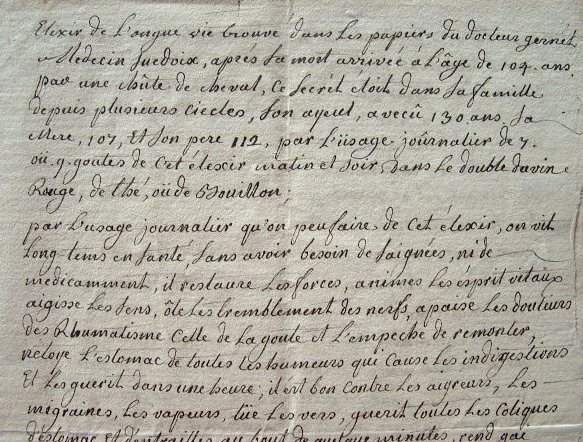 Elexir de Longue vie trouve dans Les papiers du docteur gernèt
Medecin Suedoix, aprés Sa mort arriveé á L'âge de 104. ans
par une chûte de cheval, Ce Secrét étoit dans Sa famille
depuis plusieurs Ciecles, Son ayeul, avecû 130 ans, Sa
Mere, 107, Et Son pere 112, par L'ûsage journalier de 7.
oû 9. goutes de Cet élexir matin et Soir, dans Le double du vin
Rouge, de thé, oû de Bouillon;
par L'usage journalier qu'on peu faire de Cet élexir, on vit
Long tems en Santé, Sans avoir besoin de Saignées, ni de
medicamment, il restaure Les forces, animes Les ésprit vitaux
aigisse Les Sens, ôte Les tremblement des nerfs, apaise Les douleurs
des Rhumatisme Celle de La goute et L'empeche de remonter,
netoye L'estomac de toutes Les humeurs qui Cause Les indigestions
Et Les guerit dans une heure, il ést bon Contre Les aigreurs, Les
migraines, Les vapeurs, tüe Les vers, guerit toutes Les Coliques
d'estomac Et d'entrailles au bout de quelque minutes, rend gai